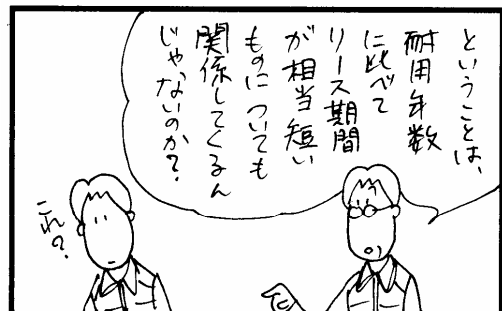 ということは、
耐用年数
に比べて
リース期間
が相当短い
ものについても
関係してくるん
じゃないのか?
これ?